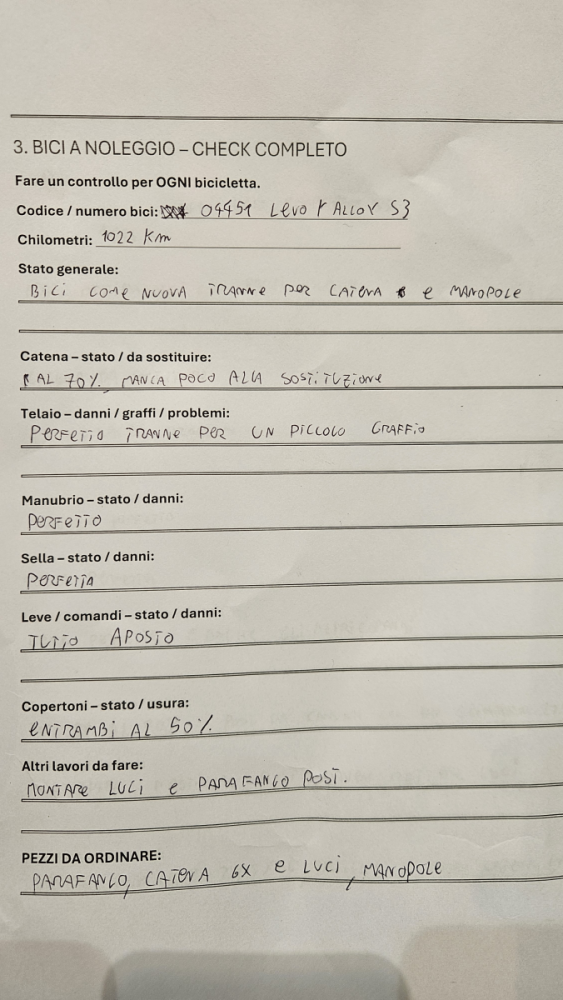 3. BICI A NOLEGGIO – CHECK COMPLETO
Fare un controllo per OGNI bicicletta.
Codice / numero bici: 04451 LEVO ALLOY S3
Chilometri: 1022 Km
Stato generale:
BICI COME NUOVA TRANNE PER CATENA e MANOPOLE
Catena – stato / da sostituire:
AL 70%. MANCA POCO ALLA SOSTITUZIONE
Telaio – danni / graffi / problemi:
PERFETTO TRANNE PER UN PICCOLO GRAFFIO
Manubrio – stato / danni:
PERFETTO
Sella – stato / danni:
PERFETTA
Leve / comandi – stato / danni:
TUTTO APOSTO
Copertoni – stato / usura:
ENTRAMBI AL 50%
Altri lavori da fare:
MONTARE LUCI e PARAFANGO POST.
PEZZI DA ORDINARE:
PARAFANGO, CATENA GX e LUCI, MANOPOLE